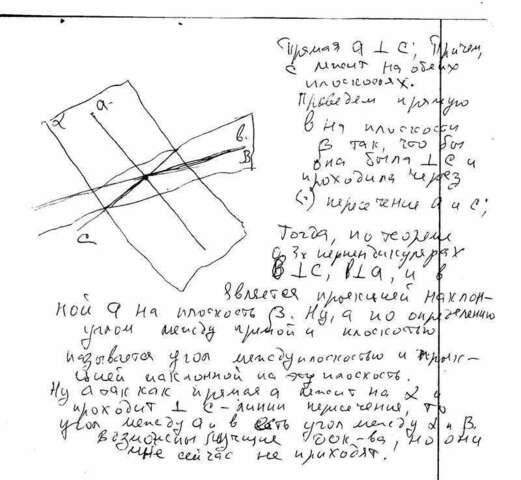 Прямая a ⊥ c; Причем,
c лежит на обеих
плоскостях.
Проведем прямую
в на плоскости
β так, что бы
она была ⊥ c и
проходила через
(·) пересечение a и c;
Тогда, по теореме
о 3х перпендикулярах
в ⊥ c, в ⊥ a, и в
является проекцией наклон-
ной a на плоскость β. Ну, а по определению
углом между прямой и плоскостью
называется угол между плоскостью и проек-
цией наклонной на эту плоскость.
Ну а так как прямая a лежит на α и
проходит ⊥ c - линии пересечения, то
угол между a и в есть угол между α и β.
Возможны лучшие док-ва, но они
мне сейчас не приходят.
α
a
в
β
c